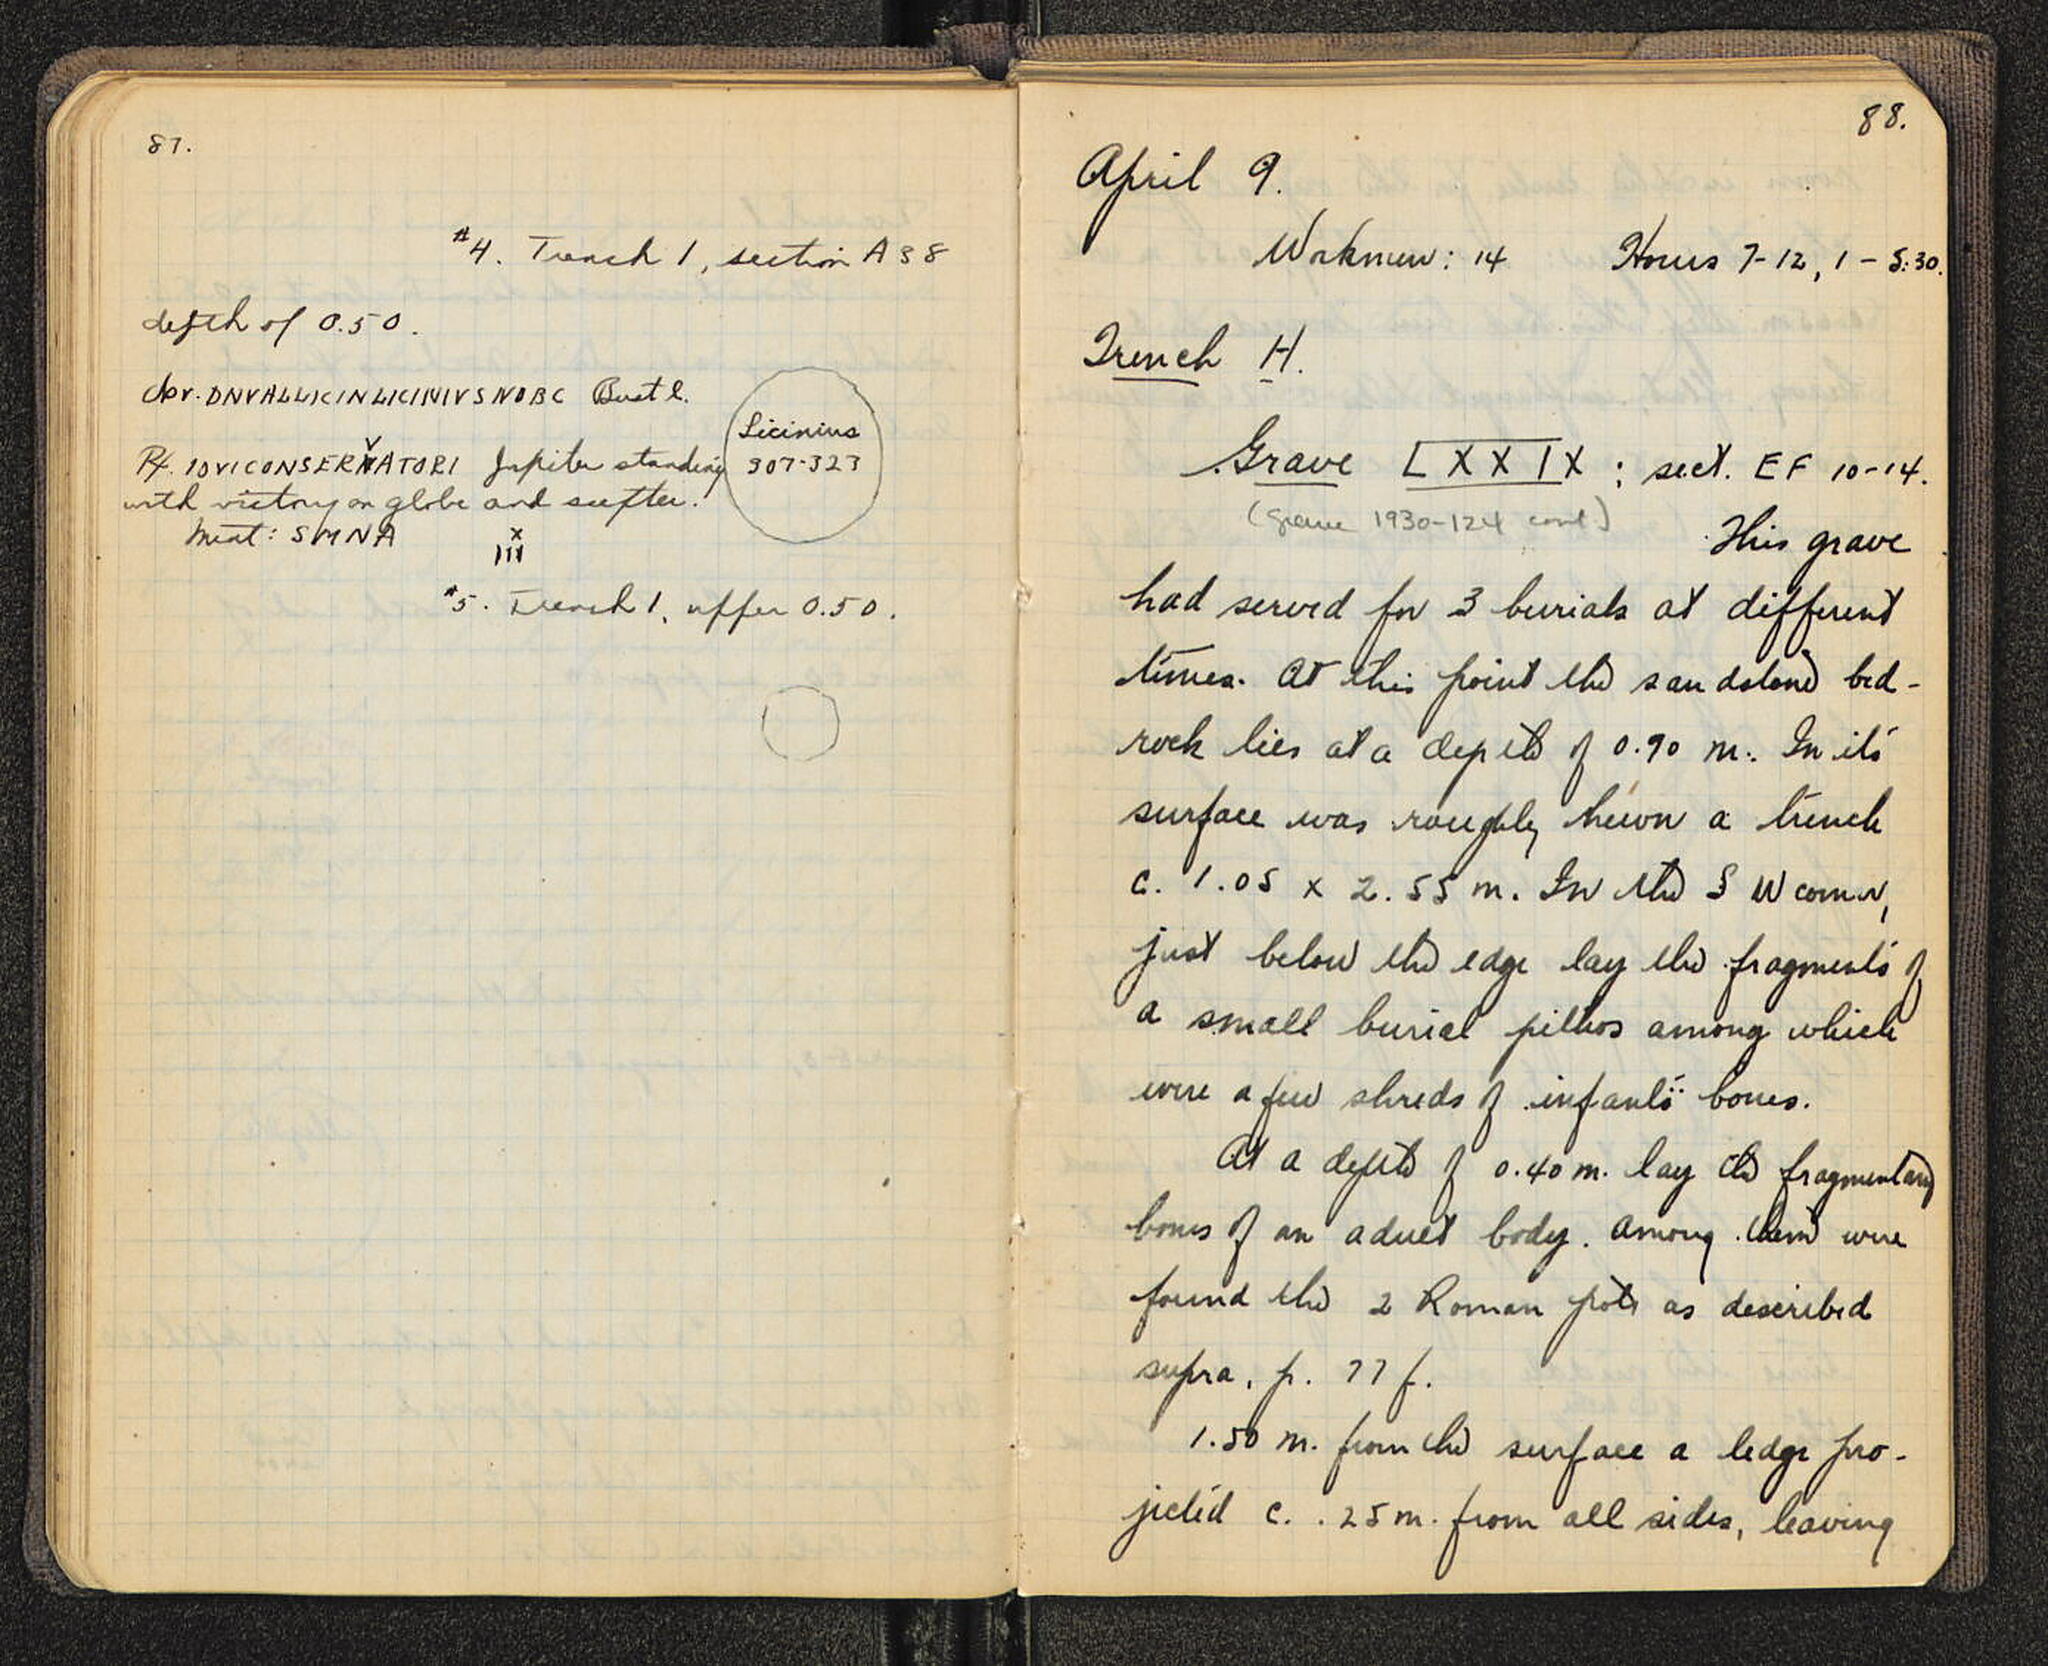 87.
#4. Trench 1, section A 38
depth of 0.50.
Obv. DNVALLICINLICINIVSNOBC Bust l.
Licinius
307-323
Rx. IOVICONSERVATORI Jupiter standing
with victory on globe and scepter.
Mint: SMNA
X
III
#5. Trench 1, upper 0.50.
88.
April 9.
Workmen: 14 Hours 7-12, 1-5:30.
Trench H.
Grave LXXIX; sect. EF 10-14.
(Grave 1930-124 cont)
This grave
had served for 3 burials at different
times. At this point the sandstone bed-
rock lies at a depth of 0.90 m. In its
surface was roughly hewn a trench
c. 1.05 x 2.55 m. In the S W corner,
just below the edge lay the fragments of
a small burial pithos among which
were a few shreds of infant's bones.
At a depth of 0.40 m. lay the fragmentary
bones of an adult body. Among them were
found the 2 Roman pots as described
supra, p. 77 f.
1.50 m. from the surface a ledge pro-
jected c. .25 m. from all sides, leaving